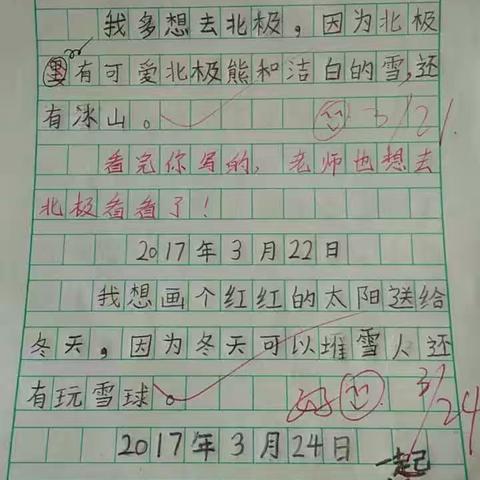 我多想去北极，因为北极
里有可爱北极熊和洁白的雪，还
有冰山。
3/21.
看完你写的，老师也想去
北极看看了！
2017年3月22日
我想画个红红的太阳送给
冬天，因为冬天可以堆雪人还
有玩雪球。
好 3/24
2017年3月24日
一起